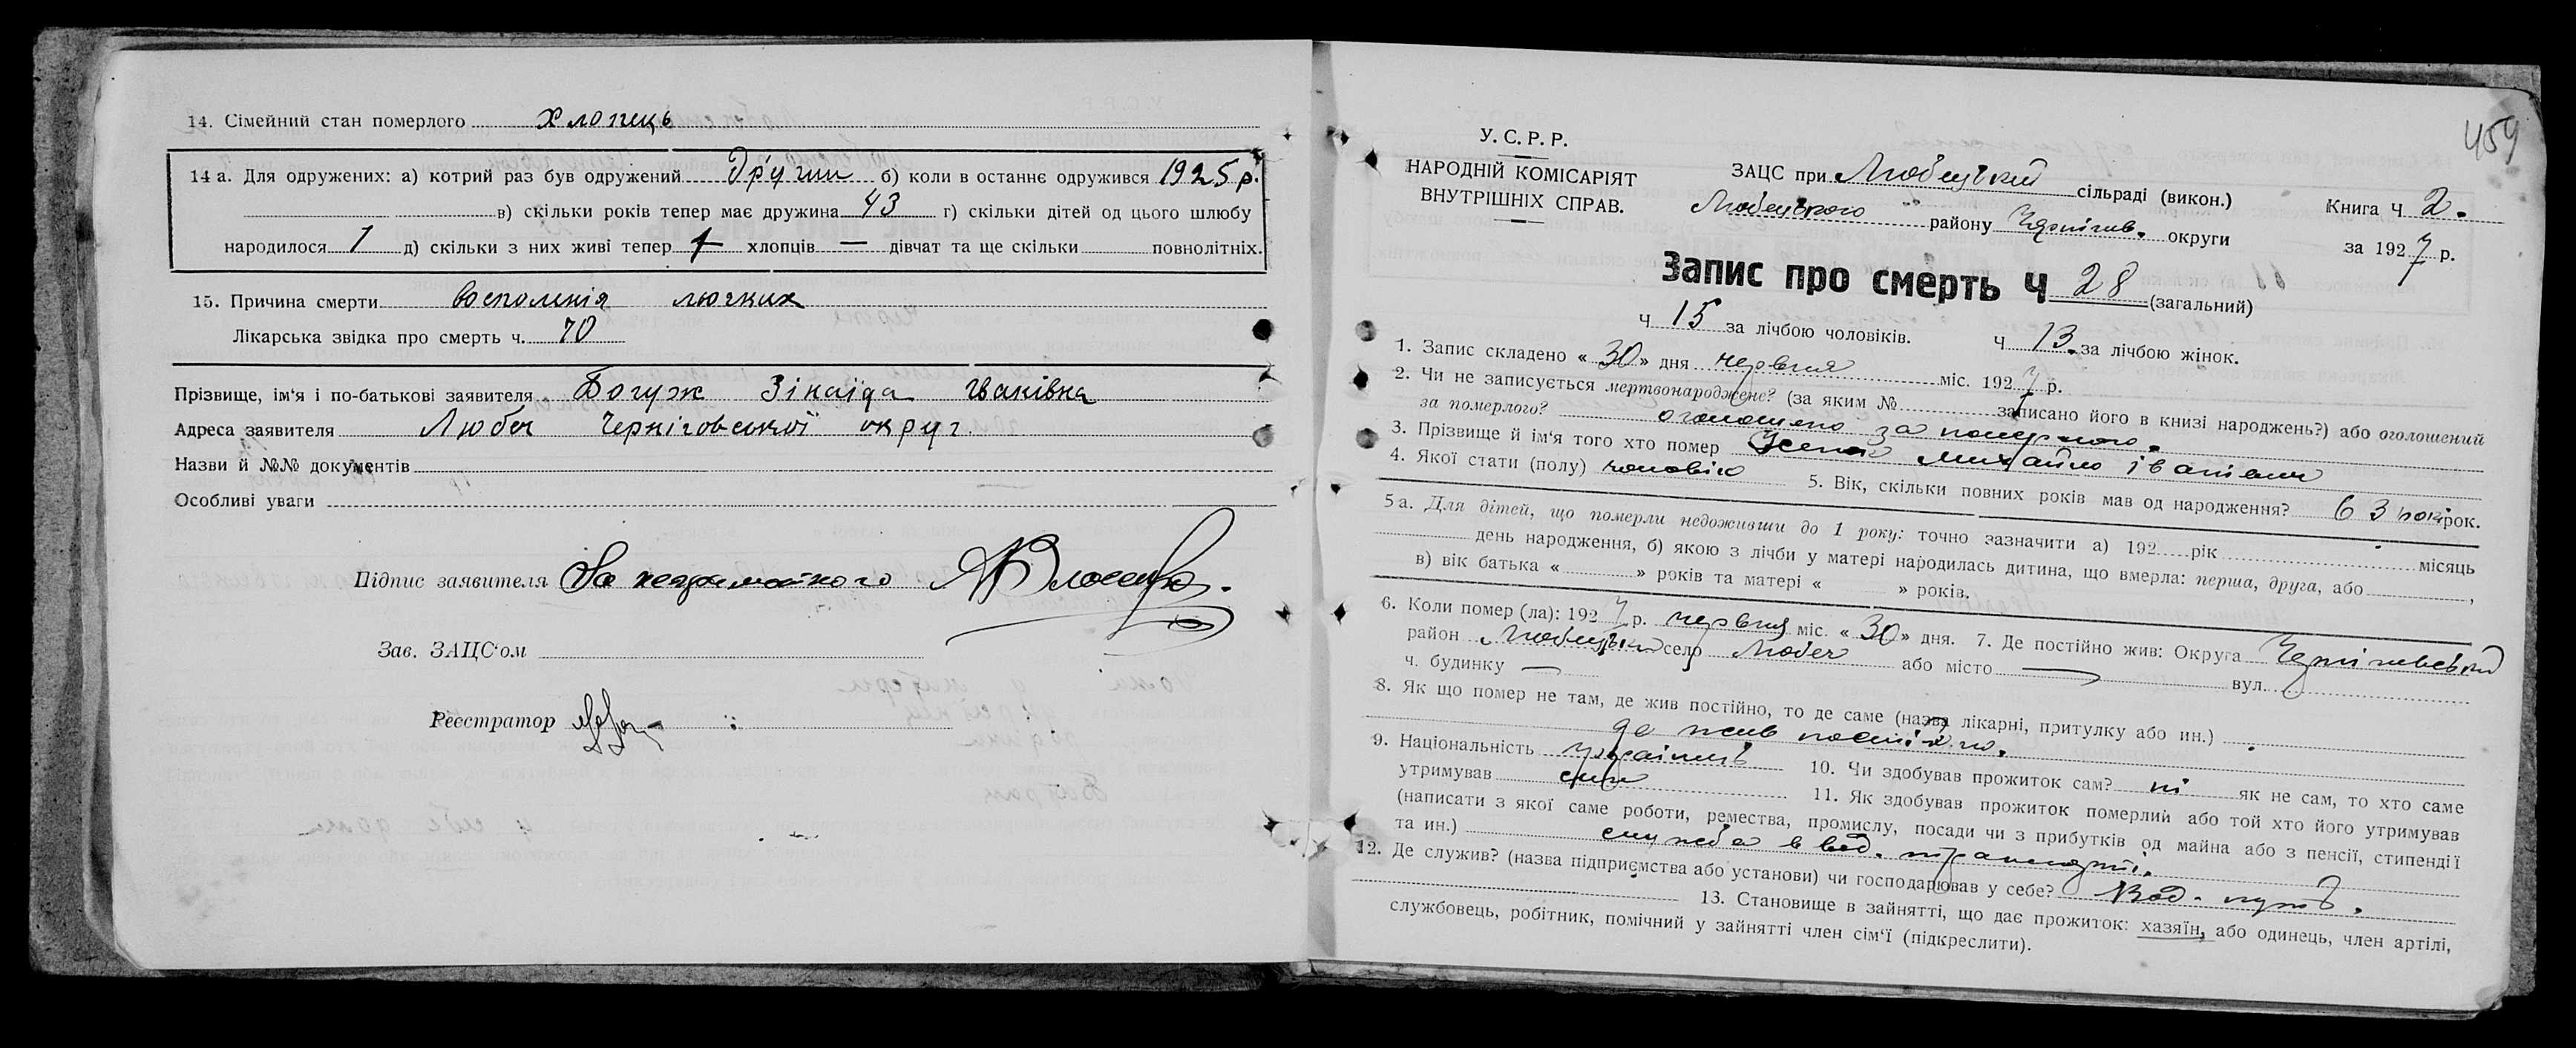 14. Сімейний стан померлого хлопець
14 а. Для одружених: а) котрий раз був одружений другим б) коли в останнє одружився 1925 р.
в) скільки років тепер має дружина 43 г) скільки дітей од цього шлюбу
народилося 1 д) скільки з них живі тепер 1 хлопців — дівчат та ще скільки повнолітніх.
15. Причина смерти воспоління лючких
Лікарська звідка про смерть ч. 70
Прізвище, ім'я і по-батькові заявителя Богуж Зінаїда Іванівна
Адреса заявителя Любеч Черніговської округ.
Назви й №№ документів
Особливі уваги
Підпис заявителя За неграмотного
Зав. ЗАЦС'ом
Реєстратор
459
У. С. Р. Р.
НАРОДНІЙ КОМІСАРІЯТ
ВНУТРІШНІХ СПРАВ.
ЗАЦС при Любецький сільраді (викон.)
Любецького району Чернігів. округи
Книга Ч 2.
за 1927 р.
Запис про смерть Ч 28 (загальний)
Ч 15 за лічбою чоловіків. Ч 13 за лічбою жінок.
1. Запис складено « 30 » дня червня міс. 1927 р.
2. Чи не записується мертвонароджене? (за яким № записано його в книзі народжень?) або оголошений
за померлого? оголошено за померлого.
3. Прізвище й ім'я того хто помер Михайло Іванович
4. Якої стати (полу) чоловік 5. Вік, скільки повних років мав од народження? 63 рок.
5 а. Для дітей, що померли недоживши до 1 року: точно зазначити а) 192 рік місяць
день народження, б) якою з лічби у матері народилась дитина, що вмерла: перша, друга, або ,
в) вік батька « » років та матері « » років.
6. Коли помер (ла): 1927 р. червня міс. « 30 » дня. 7. Де постійно жив: Округа Чернігівський
район Любецький село Любеч або місто — вул.
ч. будинку —
8. Як що помер не там, де жив постійно, то де саме (назва лікарні, притулку або ин.)
де жив постійно.
9. Національність українець 10. Чи здобував прожиток сам? ні як не сам, то хто саме
утримував син 11. Як здобував прожиток померлий або той хто його утримував
(написати з якої саме роботи, ремества, промислу, посади чи з прибутків од майна або з пенсії, стипендії
та ин.) служба в вод. транспорті.
12. Де служив? (назва підприємства або установи) чи господарював у себе? Вод. путь.
13. Становище в зайнятті, що дає прожиток: хазяїн, або одинець, член артілі,
службовець, робітник, помічний у зайнятті член сім'ї (підкреслити).